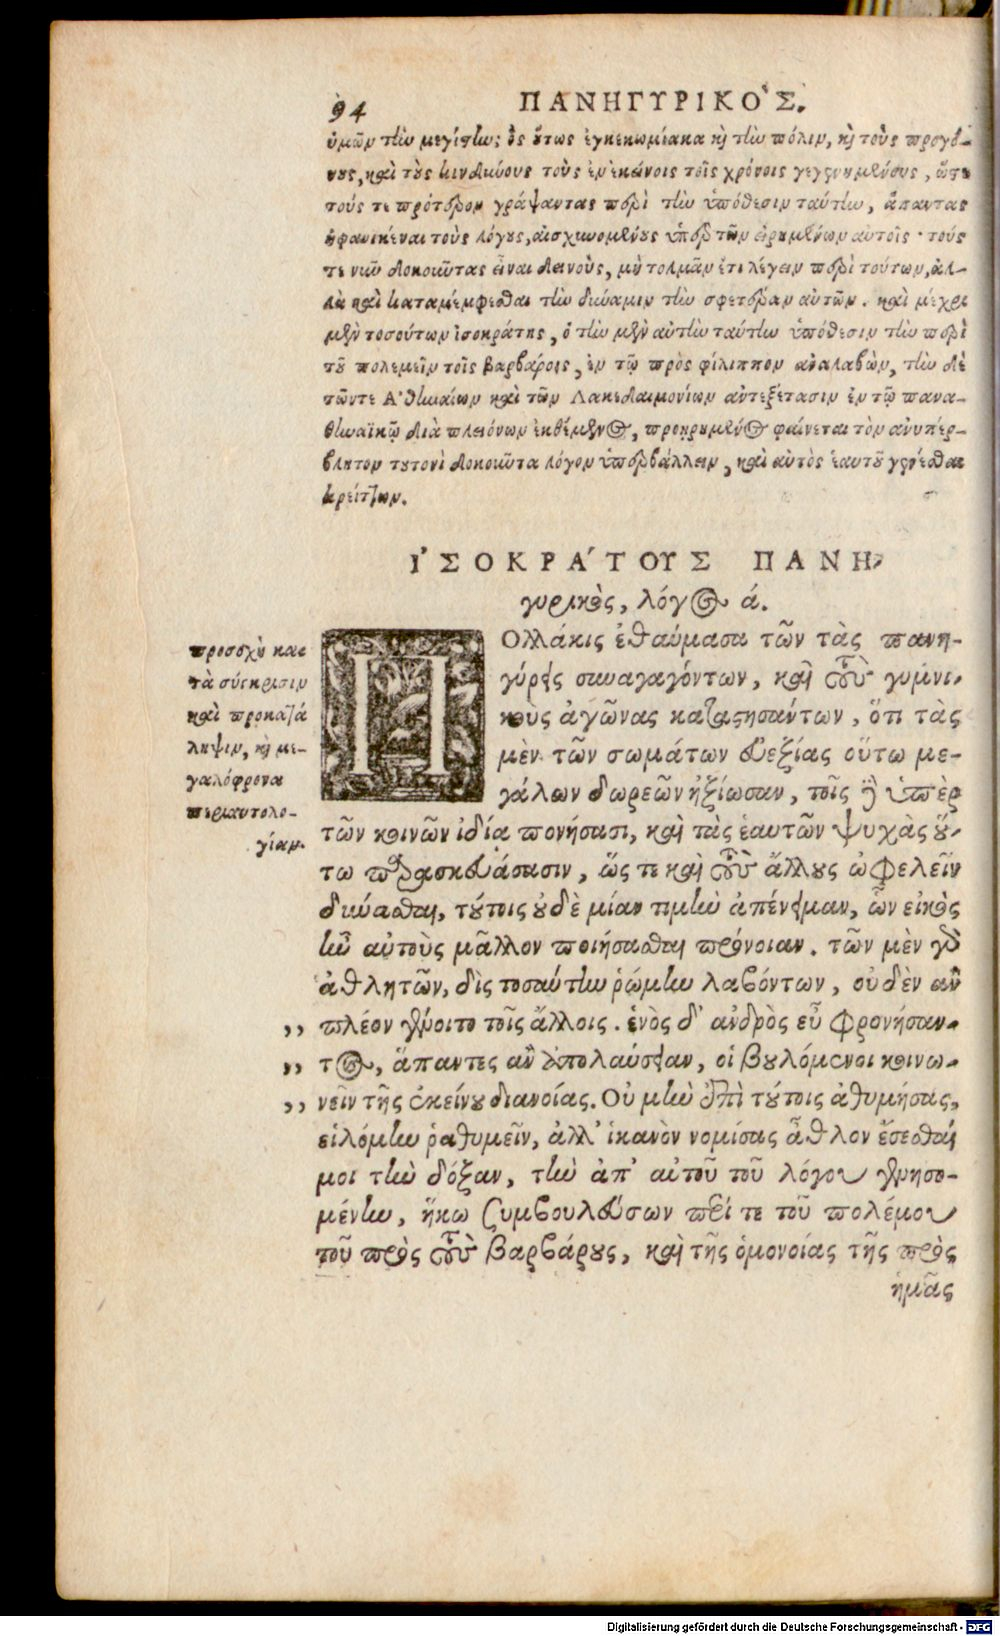 94 ΠΑΝΗΓΥΡΙΚΟ'Σ.
ὑμῶν τὴν μεγίστην; ὃς οὕτως ἐγκεκωμίακα καὶ τὴν πόλιν, καὶ τοὺς προγό-
νους, καὶ τοὺς κινδύνους τοὺς ἐν ἐκείνοις τοῖς χρόνοις γεγενημένους, ὥστε
τούς τε πρότερον γράψαντας περὶ τὴν ὑπόθεσιν ταύτην, ἅπαντας
ἠφανικέναι τοὺς λόγους, αἰσχυνομένους ὑπὲρ τῶν εἰρημένων αὐτοῖς· τούς
τε νῦν δοκοῦντας εἶναι δεινοὺς, μὴ τολμᾶν ἔτι λέγειν περὶ τούτων, ἀλ-
λὰ καὶ καταμέμφεσθαι τὴν δύναμιν τὴν σφετέραν αὐτῶν. καὶ μέχρι
μὲν τοσούτων ἰσοκράτης, ὁ τὴν μὲν αὐτὴν ταύτην ὑπόθεσιν τὴν περὶ
τοῦ πολεμεῖν τοῖς βαρβάροις, ἐν τῷ πρὸς φίλιππον ἀναλαβὼν, τὴν δὲ
τῶντε Ἀθηναίων καὶ τῶν Λακεδαιμονίων ἀντεξέτασιν ἐν τῷ πανα-
θηναϊκῷ διὰ πλειόνων ἐκθέμενος, προῃρημένος φαίνεται τὸν ἀνυπέρ-
βλητον τουτονὶ δοκοῦντα λόγον ὑπερβάλλειν, καὶ αὐτὸς ἑαυτοῦ γενέσθαι
κρείττων.
Ἰ'ΣΟΚΡΑ'ΤΟΥΣ ΠΑΝΗ-
γυρικὸς, λόγος ά.
ΠΟλλάκις ἐθαύμασα τῶν τὰς πανη-
γύρεις συναγαγόντων, καὶ τοὺς γυμνι-
κοὺς ἀγῶνας καταστησάντων, ὅτι τὰς
μὲν τῶν σωμάτων εὐεξίας οὕτω με-
γάλων δωρεῶν ἠξίωσαν, τοῖς δ' ὑπὲρ
τῶν κοινῶν ἰδίᾳ πονήσασι, καὶ τὰς ἑαυτῶν ψυχὰς οὕ-
τω παρασκευάσασιν, ὥς τε καὶ τοὺς ἄλλους ὠφελεῖν
δύνασθαι, τούτοις οὐδὲ μίαν τιμὴν ἀπένειμαν, ὧν εἰκὸς
ἦν αὐτοὺς μᾶλλον ποιήσασθαι πρόνοιαν. τῶν μὲν γὰρ
ἀθλητῶν, δὶς τοσαύτην ῥώμην λαβόντων, οὐδὲν ἂν
,, πλέον γένοιτο τοῖς ἄλλοις. ἑνὸς δ' ἀνδρὸς εὖ φρονήσαν-
,, τος, ἅπαντες ἂν ἀπολαύσειαν, οἱ βουλόμενοι κοινω-
,, νεῖν τῆς ἐκείνου διανοίας. Οὐ μὴν ἐπὶ τούτοις ἀθυμήσας,
εἱλόμην ῥαθυμεῖν, ἀλλ' ἱκανὸν νομίσας ἆθλον ἔσεσθαί
μοι τὴν δόξαν, τὴν ἀπ' αὐτοῦ τοῦ λόγου γενησο-
μένην, ἥκω ξυμβουλεύσων περί τε τοῦ πολέμου
τοῦ πρὸς τοὺς βαρβάρους, καὶ τῆς ὁμονοίας τῆς πρὸς
ἡμᾶς
προσοχὴ κα-
τὰ σύγκρισιν
καὶ προκατά
ληψιν, καὶ με-
γαλόφρονα
περιαυτολο-
γίαν.
Digitalisierung gefördert durch die Deutsche Forschungsgemeinschaft - DFG